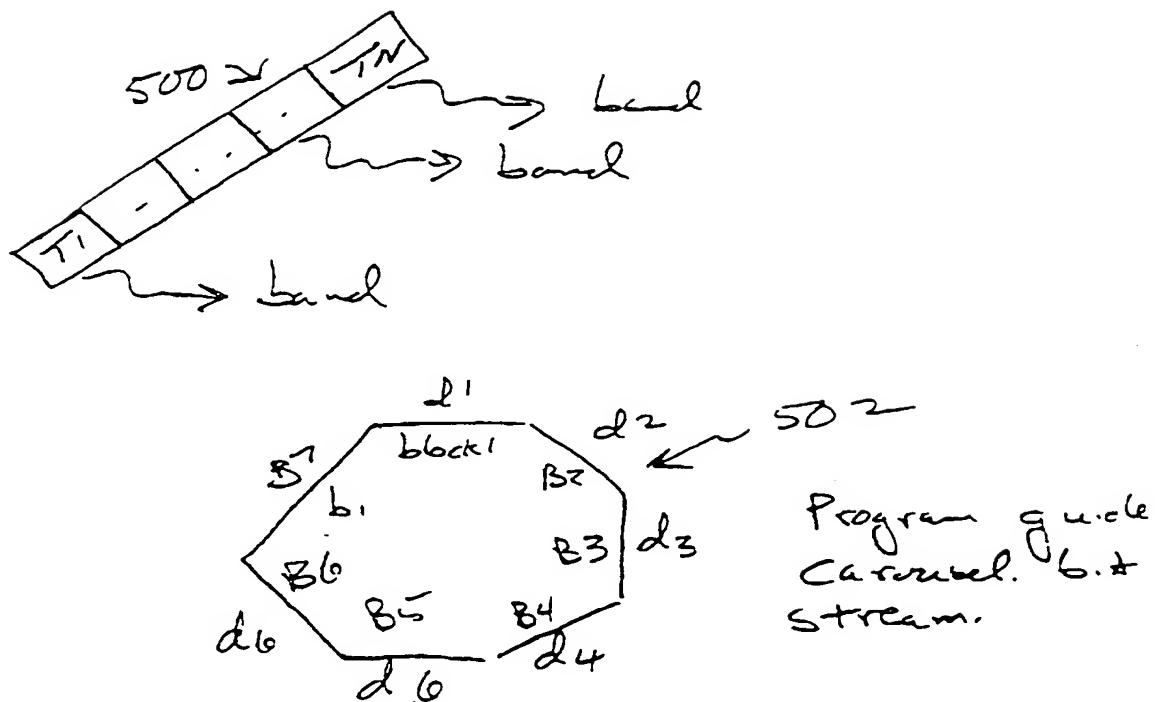 500
TN
- . . . .
T1
band
band
band
d1
block1
d2
502
B7
b1
B2
B3
d3
B6
B5
B4
d6
d6
d4
Program guide
Carousel. bit
stream.